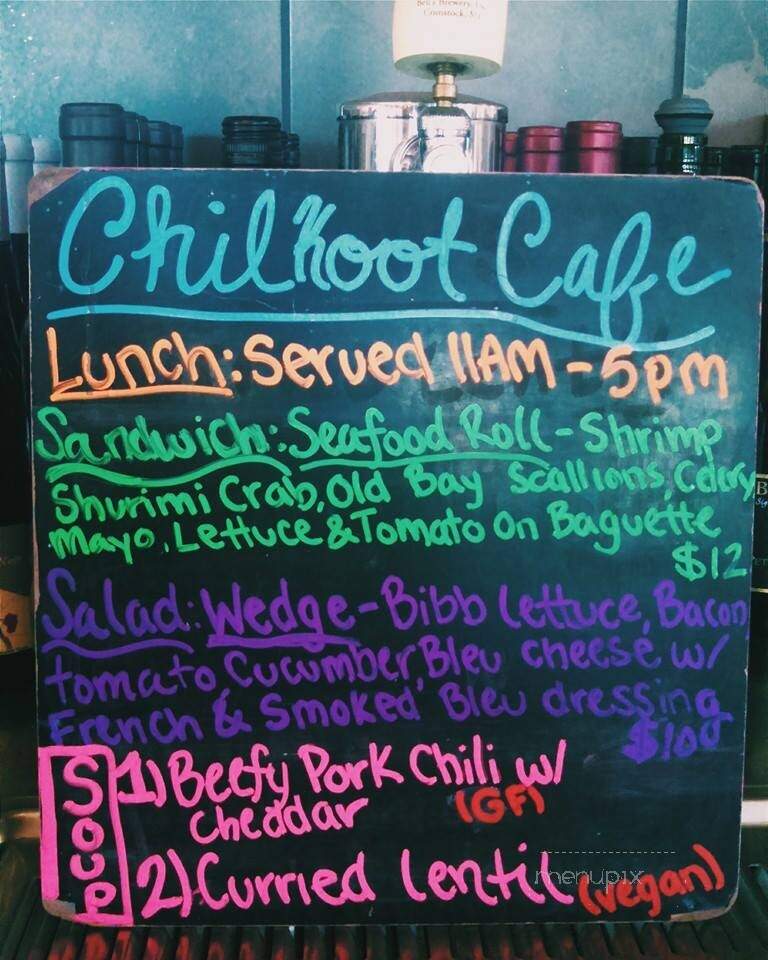 Bell's Brewery, In
Comstock, MI
Chilkoot Cafe
Lunch: Served 11AM - 5pm
Sandwich: Seafood Roll - Shrimp
Shurimi Crab, Old Bay Scallions, Celery,
Mayo, Lettuce & Tomato On Baguette
$12
Salad: Wedge - Bibb lettuce, Bacon
tomato Cucumber, Bleu cheese w/
French & Smoked Bleu dressing
$10
Soup
1) Beefy Pork Chili w/
cheddar (GF)
2) Curried lentil (vegan)
menupix